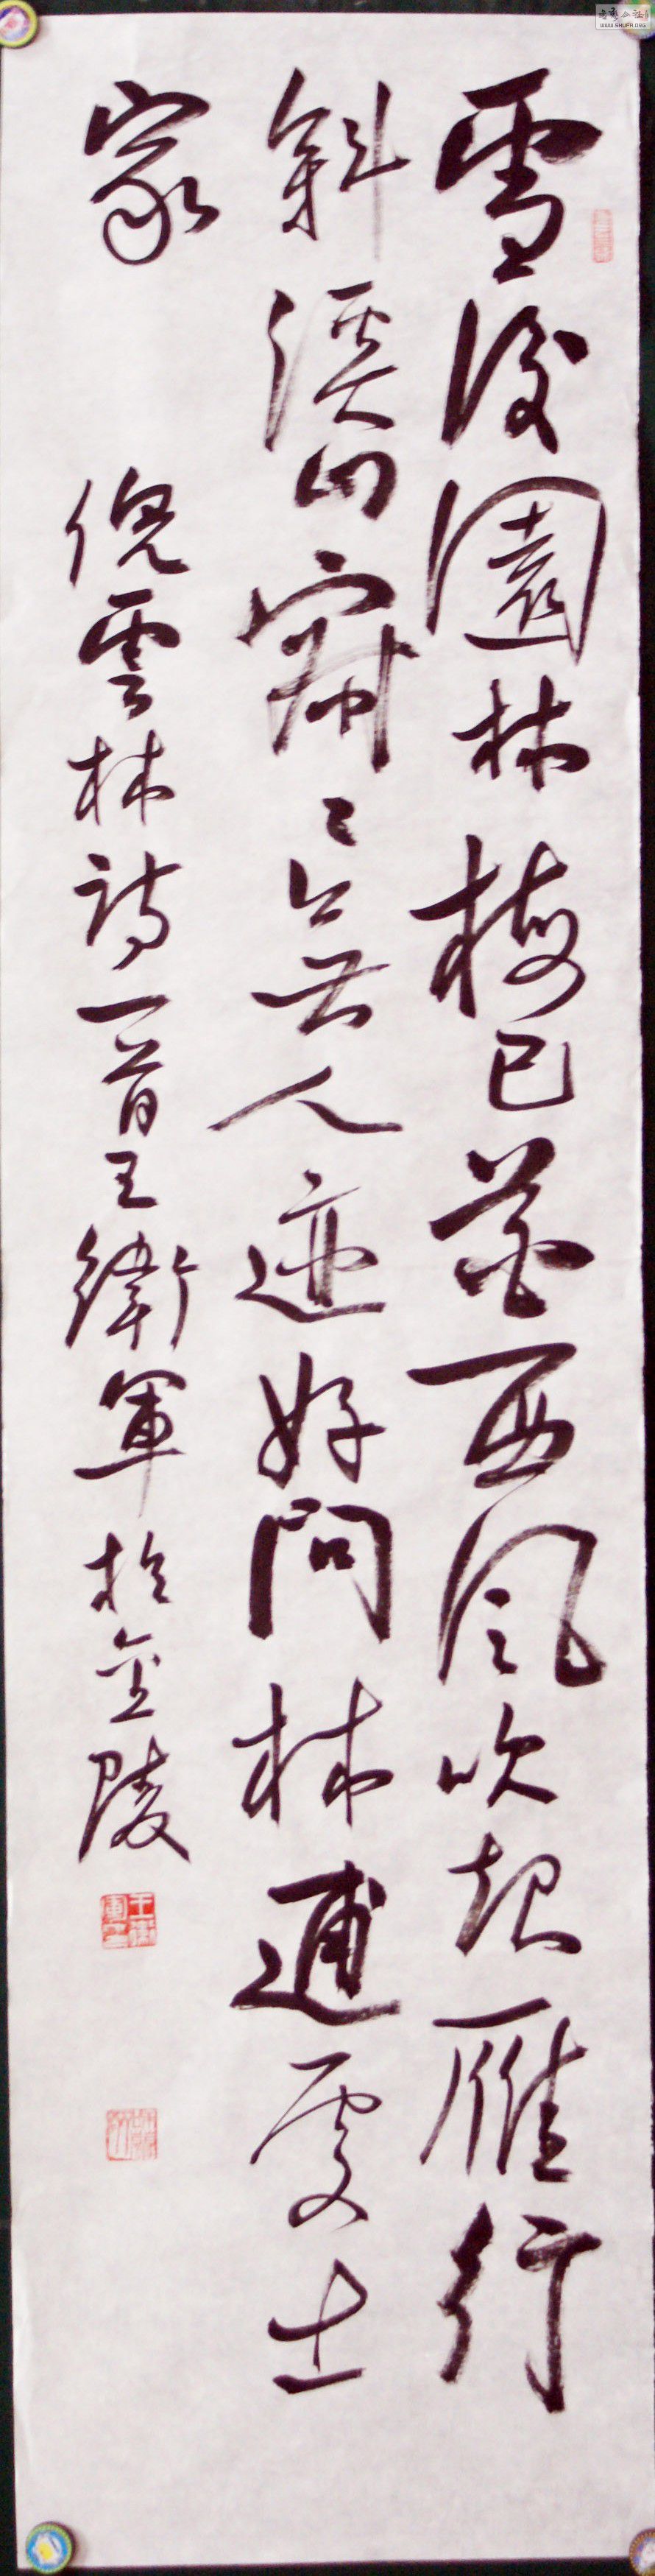 雪後園林梅已花西風吹起雁行
斜溪山寂〻無人迹好問林逋處士
家
倪雲林詩一首王衛軍於金陵
WWW.SHUFA.ORG